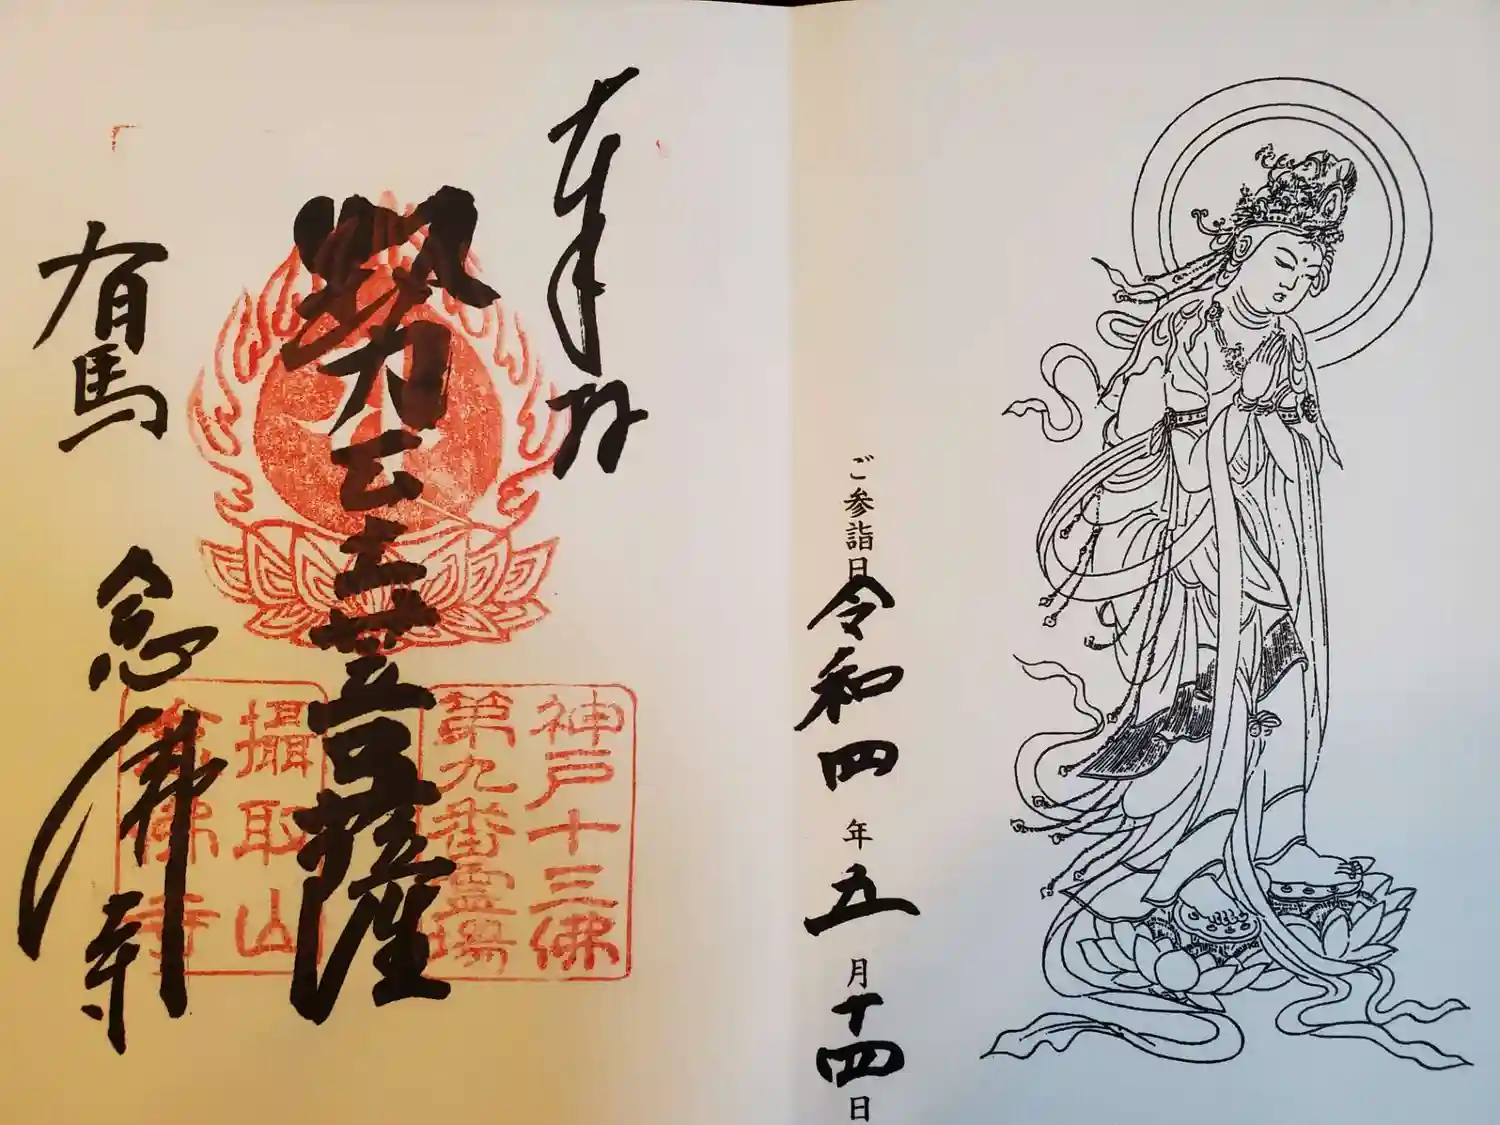 ご参詣日令和四年五月十四日
奉拝
勢至菩薩
有馬
念佛寺
神戸十三佛
第九番霊場
攝取山
念佛寺